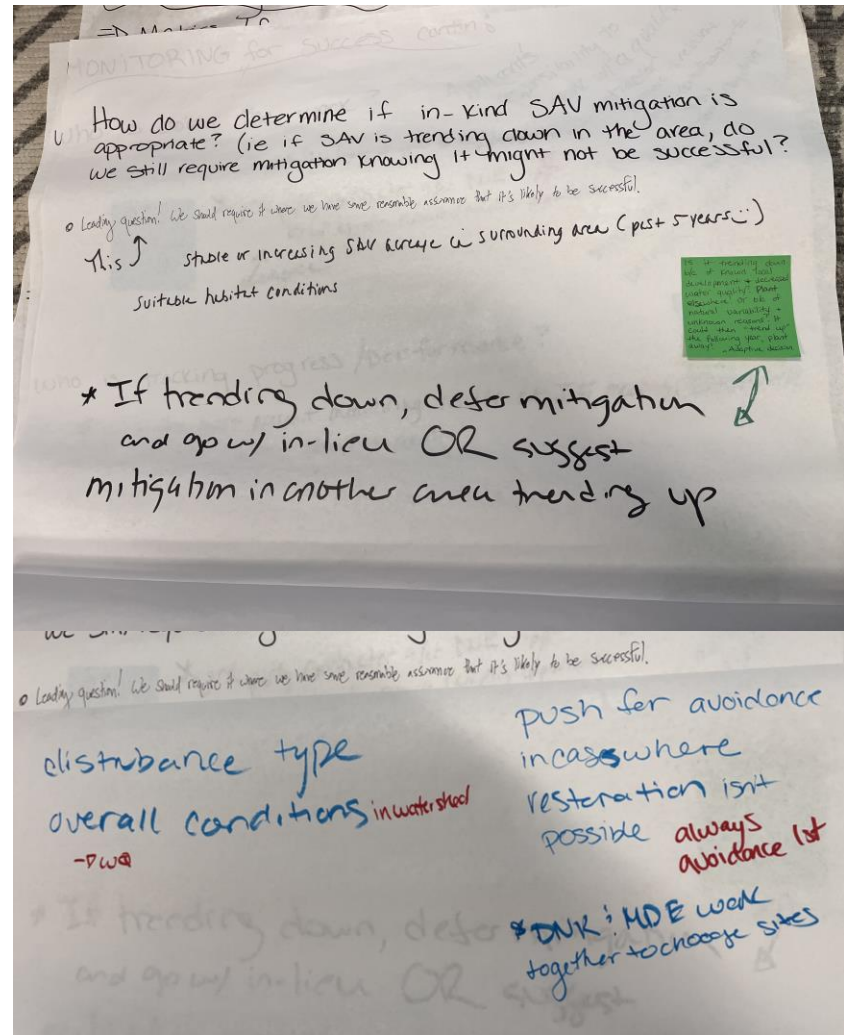 => Making Tr
MONITORING for success contin:
How do we determine if in-kind SAV mitigation is
appropriate? (ie if SAV is trending down in the area, do
we still require mitigation knowing it might not be successful?
o Leading question! We should require it where we have some reasonable assurance that it's likely to be successful.
This ↑ stable or increasing SAV acreage in surrounding area (past 5 years :)
suitable habitat conditions
Is it trending down
b/c of known local
development + decreased
water quality? Plant
elsewhere. Or b/c of
natural variability +
unknown reasons? It
could then "trend up"
the following year, plant
away!
Adaptive decision
who is tracking progress/performance?
* If trending down, defer mitigation
and go w/ in-lieu OR suggest
mitigation in another area trending up
o Leading question! We should require it where we have some reasonable assurance that it's likely to be successful.
disturbance type
overall conditions in watershed
-> WQ
push for avoidance
in cases where
restoration isn't
possible always
avoidance 1st
* DNR & MDE work
together to choose sites
* If trending down, defer
and go w/ in-lieu OR suggest